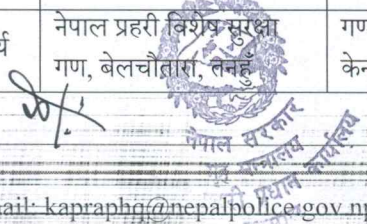 र्य नेपाल प्रहरी विशेष सुरक्षा गण
गण, बेलचौतारा, तनहुँ केन
नेपाल सरकार
गृह मन्त्रालय
प्रधान कार्यालय
ail: kapraphq@nepalpolice.gov.np